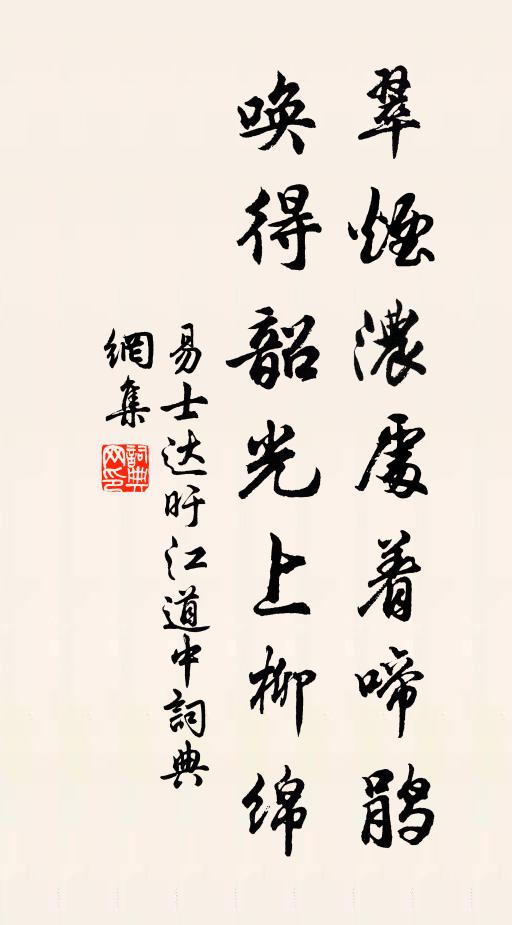 翠煙濃處着啼鹃
唤得韶光上柳绵
易士达旴江道中詞典
網集
詞典
网印